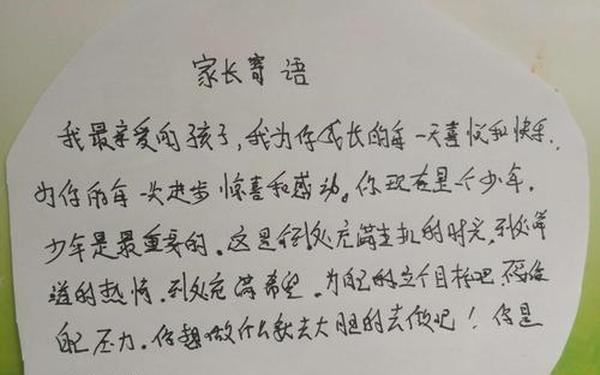 家长寄语
我最亲爱的孩子,我为你成长的每一天喜悦和快乐,
为你的每一次进步惊喜和感动。你现在是一个少年,
少年是最重要的。这是到处充满生机的时光,到处
的热情,到处充满希望。为自己的立个目标吧,
自己压力。你想做什么就去大胆的去做吧!你是